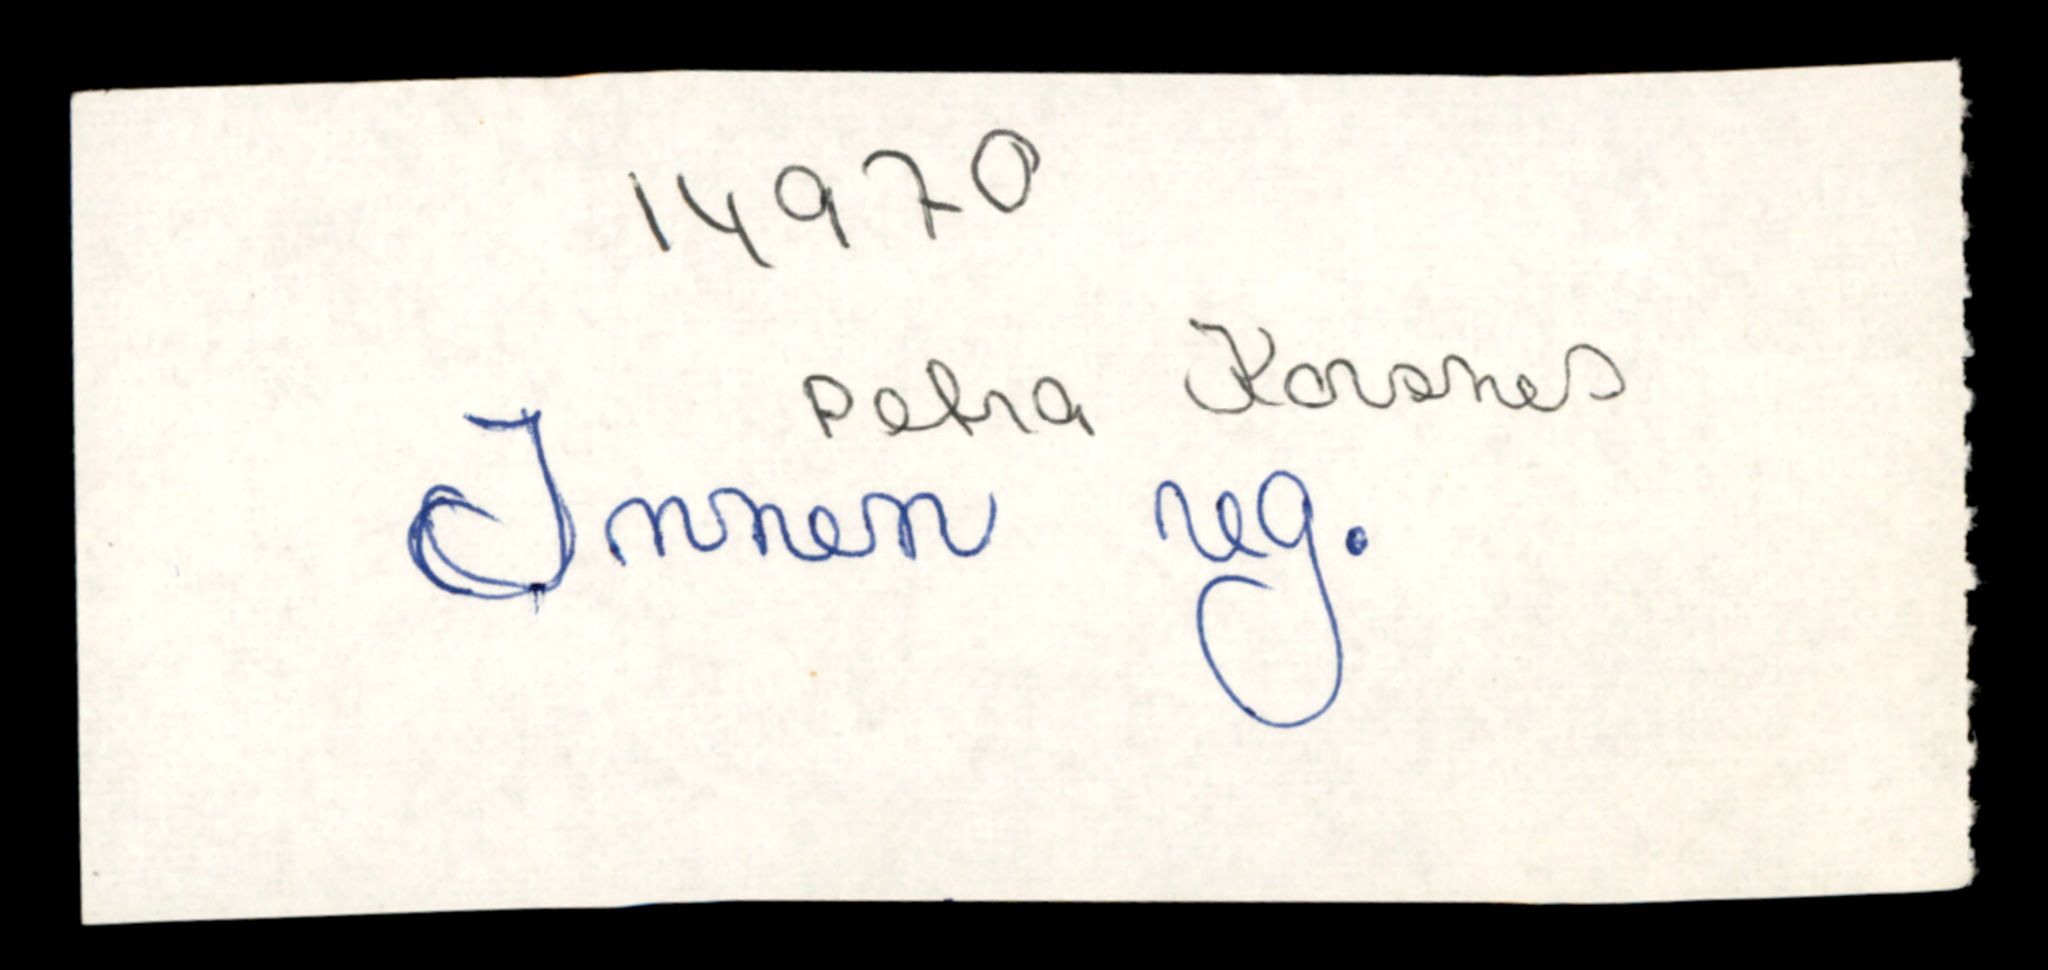 14970
Petra Korsnes
Innen reg.